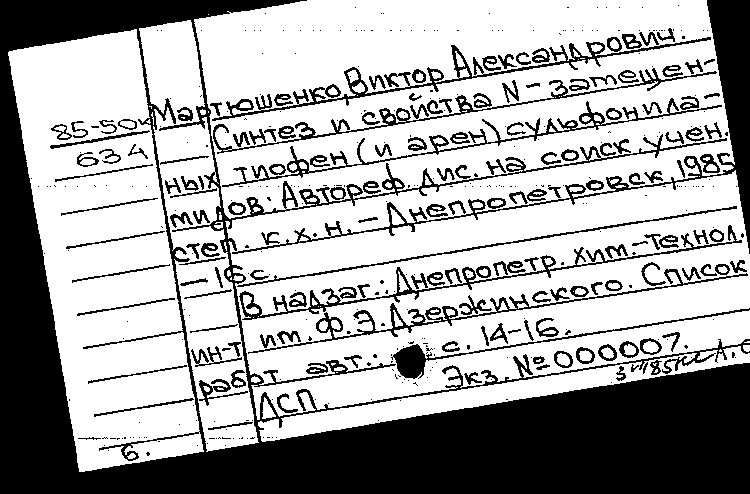 Мартюшенко, Виктор Александрович.
85-50к
634
Синтез и свойства N-замещен-
ных тиофен(и арен)сульфонила-
мидов: Автореф. дис. на соиск. учен.
степ. к.х.н. - Днепропетровск, 1985
- 16 с.
В надзаг.: Днепропетр. хим.-технол.
ин-т им. Ф.Э. Дзержинского. Список
работ авт.: с. 14-16.
Экз. № 000007.
ДСП.
6.